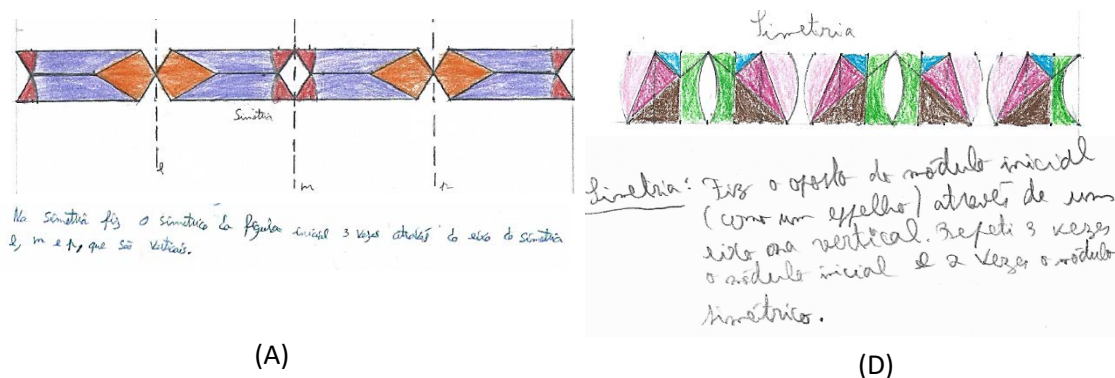 Simetria
l
m
Na simetria fiz o simétrico da figura inicial 3 vezes através do eixo de simetria
l, m e n, que são verticais.
(A)
Simetria
Simetria: Fiz o oposto do módulo inicial
(como um espelho) através de um
eixo na vertical. Repeti 3 vezes
o módulo inicial e 2 vezes o módulo
simétrico.
(D)